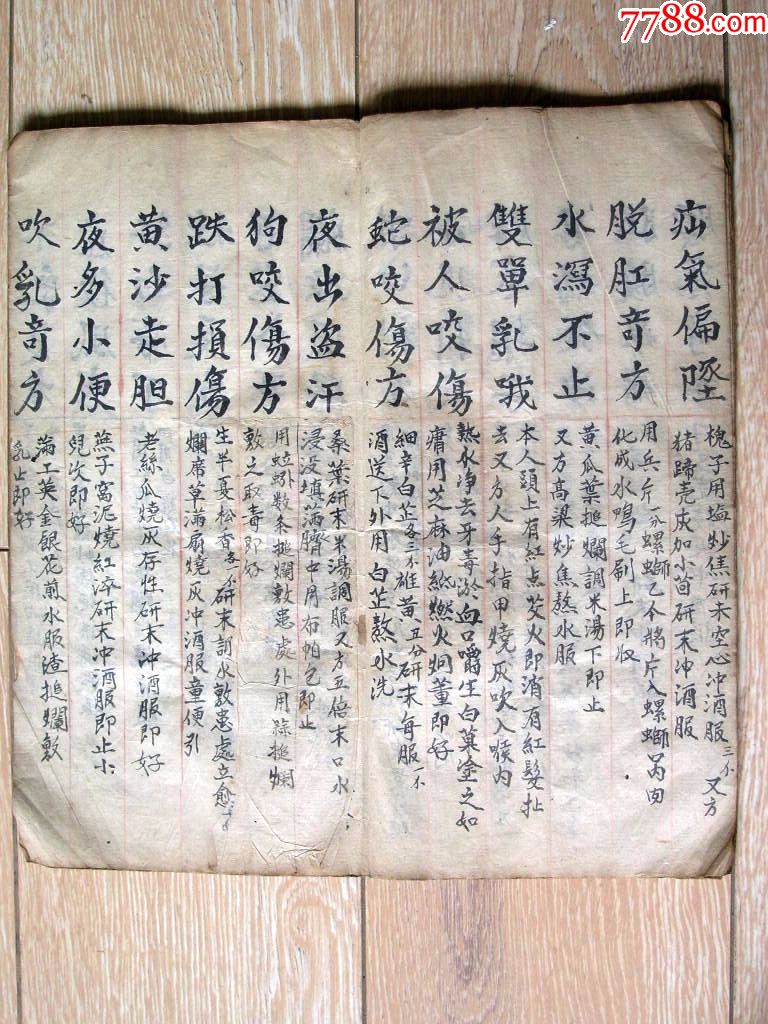 7788.com
疝氣偏墜
槐子用塩炒焦研末空心冲酒服三不又方
猪蹄壳灰加小茴研末冲酒服
脱肛奇方
用兵片一分螺螄乙个將片入螺螄
化成水鴨毛刷上即收
水瀉不止
黄瓜葉搥爛調米湯下即止
又方高粱炒焦熬水服
雙單乳哦
本人頭上有紅点芠火即消有紅髮扯
去又方人手指甲燒灰吹入喉内
被人咬傷
熱水净去牙毒淤血口嚼生白菓塗之如
癰用芝麻油紙燃火焗薰即好
蛇咬傷方
細辛白芷各三不雄黄五分研末每服不
酒送下外用白芷熬水洗
夜出盗汗
桑葉研末米湯調服又方五倍末口水
浸没填满臍中用布帕包即止
狗咬傷方
用蚯蚓数条搥爛敷患處外用蒜搥爛
敷之取毒即好
跌打損傷
生半夏松香各不研末調水敷患處立愈
爛席草满扇燒灰冲酒服童便引
黄沙走胆
老絲瓜燒灰存性研末冲酒服即好
夜多小便
燕子窩泥燒紅淬研末冲酒服即止小
兒次即好
吹乳奇方
蒲工英金銀花煎水服渣搥爛敷
乳上即好